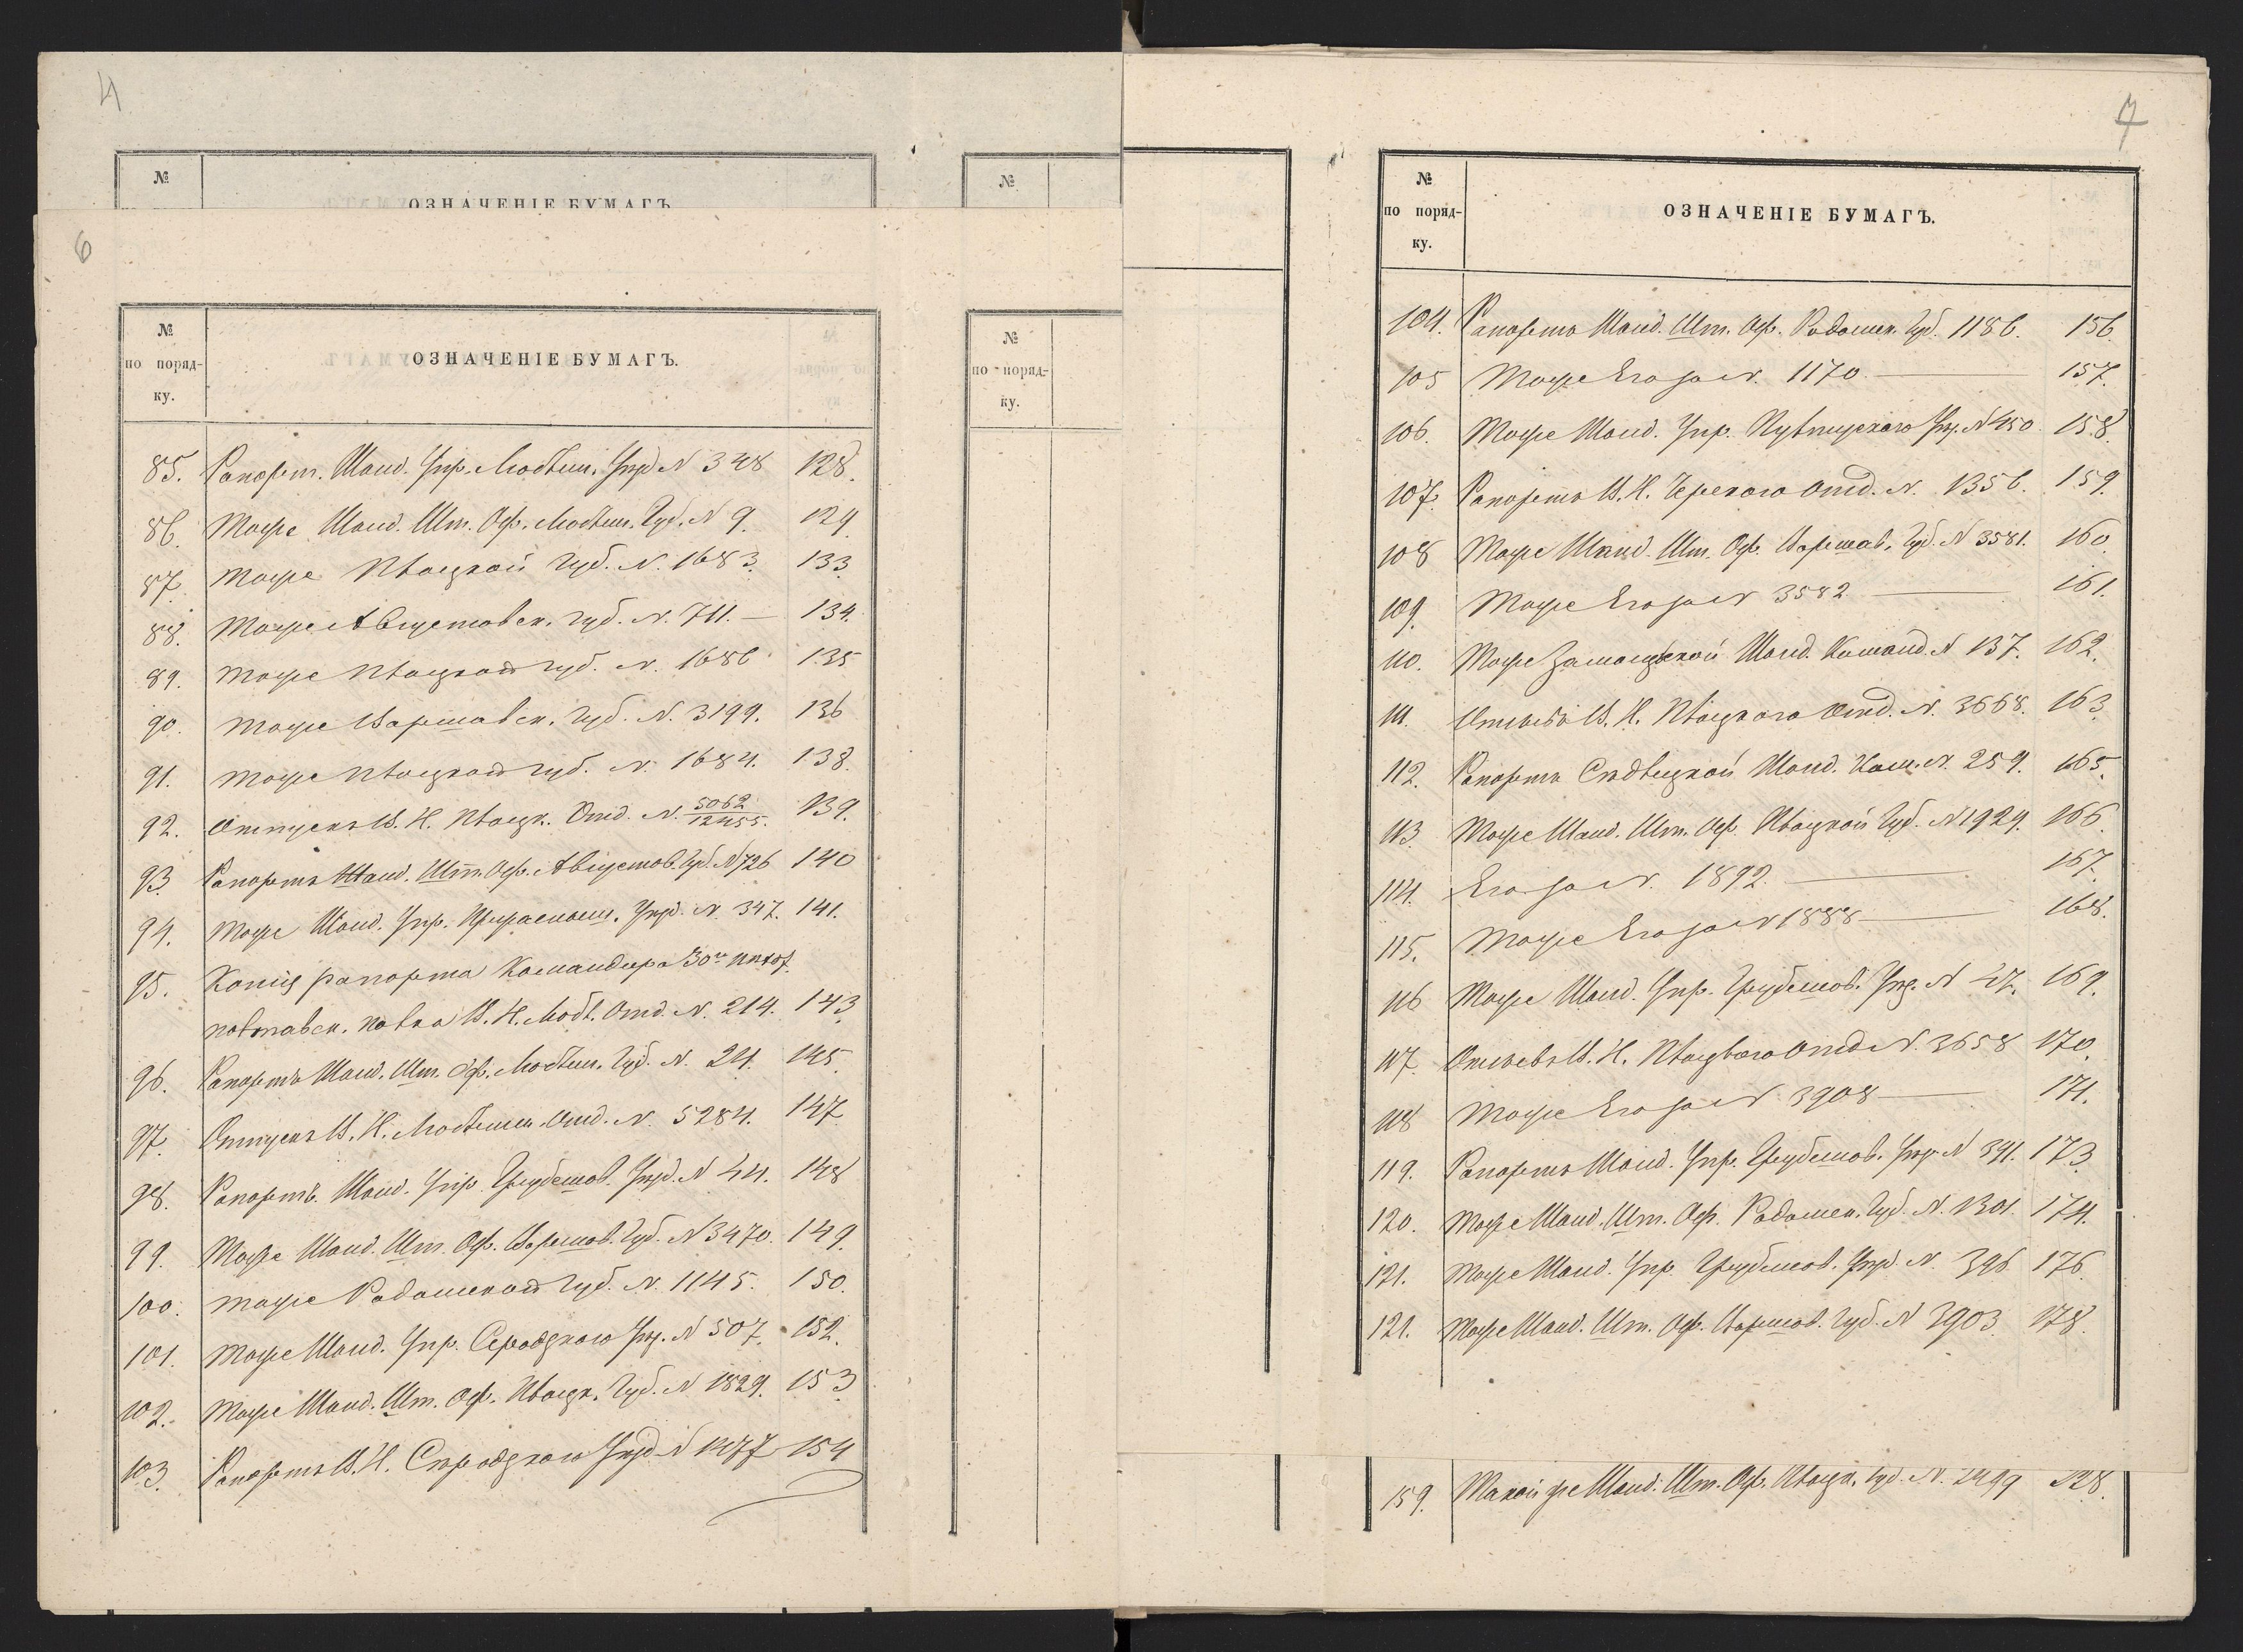 4
№
ОЗНАЧЕНІЕ БУМАГЪ
№
6
№
по поряд-
ку.
ОЗНАЧЕНІЕ БУМАГЪ.
№
по поряд-
ку.
85. Рапорт. Жанд. Упр. Люблин. Уѣзд N 348 128.
86. Тоже Жанд. Шт. Оф. Люблин. Губ. N 9. 129
87. Тоже Плоцкой Губ. N. 1683. 133.
88. Тоже Августовск. губ. N. 711. — 134.
89. Тоже Плоцкой губ. N. 1686 135
90. Тоже Варшавск. Губ. N. 3199. 136
91. Тоже Плоцкой губ. N. 1684. 138.
92. Отпускъ В. Н. Плоцк. Отд. N. 5062/12455. 139.
93. Рапортъ Жанд. Шт. Оф. Августов. Губ. N 726 140
94. Тоже Жанд. Упр. Прасныш. Уѣзд. N. 347. 141.
95. Копія рапорта Командира 30го пѣхот.
полтавск. полка В. Н. Любл. Отд. N. 214. 143.
96. Рапортъ Жанд. Шт. Оф. Люблин. Губ. N. 24. 145.
97. Отпускъ В. Н. Люблинск. Отд. N. 5284. 147.
98. Рапортъ. Жанд. Упр. Грубешов. Уѣзд. N 44. 148
99. Тоже Жанд. Шт. Оф. Варшав. Губ. N 3470. 149.
100. Тоже Радомской Губ. N. 1145. 150.
101. Тоже Жанд. Упр. Серадзкаго Уѣз. N 507. 152.
102. Тоже Жанд. Шт. Оф. Плоцк. Губ. N 1829. 153
103. Рапортъ В. Н. Сѣрадзкаго Уѣзд N 1477 154
7
№
по поряд-
ку.
ОЗНАЧЕНІЕ БУМАГЪ.
104. Рапортъ Жанд. Шт. Оф. Радомск. Губ. 1186. 156.
105 Тоже Его за N. 1170. — 157.
106. Тоже Жанд. Упр. Пултускаго Уѣз. N 450 158.
107. Рапортъ В. Н. Черскаго Отд. N. 1356. 159.
108 Тоже Жанд. Шт. Оф. Варшав. Губ. N 3581. 160.
109. Тоже Его за N 3582 — 161.
110. Тоже Замосцской Жанд. Команд. N 137. 162.
111. Отзывъ В. Н. Плоцкаго Отд. N. 3668. 163.
112. Рапортъ Сѣдлецкой Жанд. Ком. N. 259. 165.
113. Тоже Жанд. Шт. Оф. Плоцкой Губ. N 1929. 166.
114. Его за N. 1892. — 167.
115. Тоже Его за N 1888 — 168.
116 Тоже Жанд. Упр. Грубешов. Уѣз. N 47. 169.
117. Отзывъ В. Н. Плоцкаго Отд N. 3658 170.
118 Тоже Его за N 3908 — 171.
119. Рапортъ Жанд. Упр. Грубешов. Уѣзд N 391. 173.
120. Тоже Жанд. Шт. Оф. Радомск. Губ. N. 1301. 174.
121. Тоже Жанд. Упр. Грубешов. Уѣзд N. 396 176.
121. Тоже Жанд. Шт. Оф. Варшав. Губ. N 3903. 178.
159. Такой же Жанд. Шт. Оф. Плоцк. Губ. N. 2499 228.